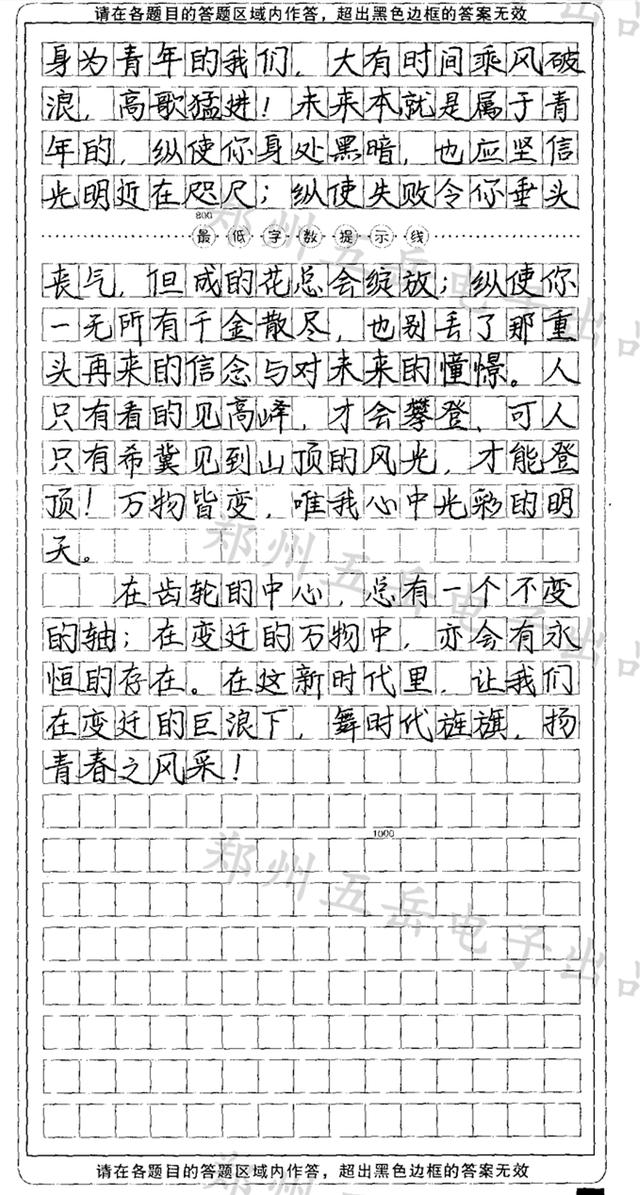 请在各题目的答题区域内作答，超出黑色边框的答案无效
身为青年的我们，大有时间乘风破
浪，高歌猛进！未来本就是属于青
年的，纵使你身处黑暗，也应坚信
光明近在咫尺；纵使失败令你垂头
800
最低字数提示线
丧气，但成的花总会绽放；纵使你
一无所有千金散尽，也别丢了那重
头再来的信念与对未来的憧憬。人
只有看的见高峰，才会攀登，可人
只有希冀见到山顶的风光，才能登
顶！万物皆变，唯我心中光彩的明
天。
在齿轮的中心，总有一个不变
的轴；在变迁的万物中，亦会有永
恒的存在。在这新时代里，让我们
在变迁的巨浪下，舞时代旌旗，扬
青春之风采！
1000
请在各题目的答题区域内作答，超出黑色边框的答案无效
郑州五岳电子出品
郑州五岳电子出品
郑州五岳电子出品